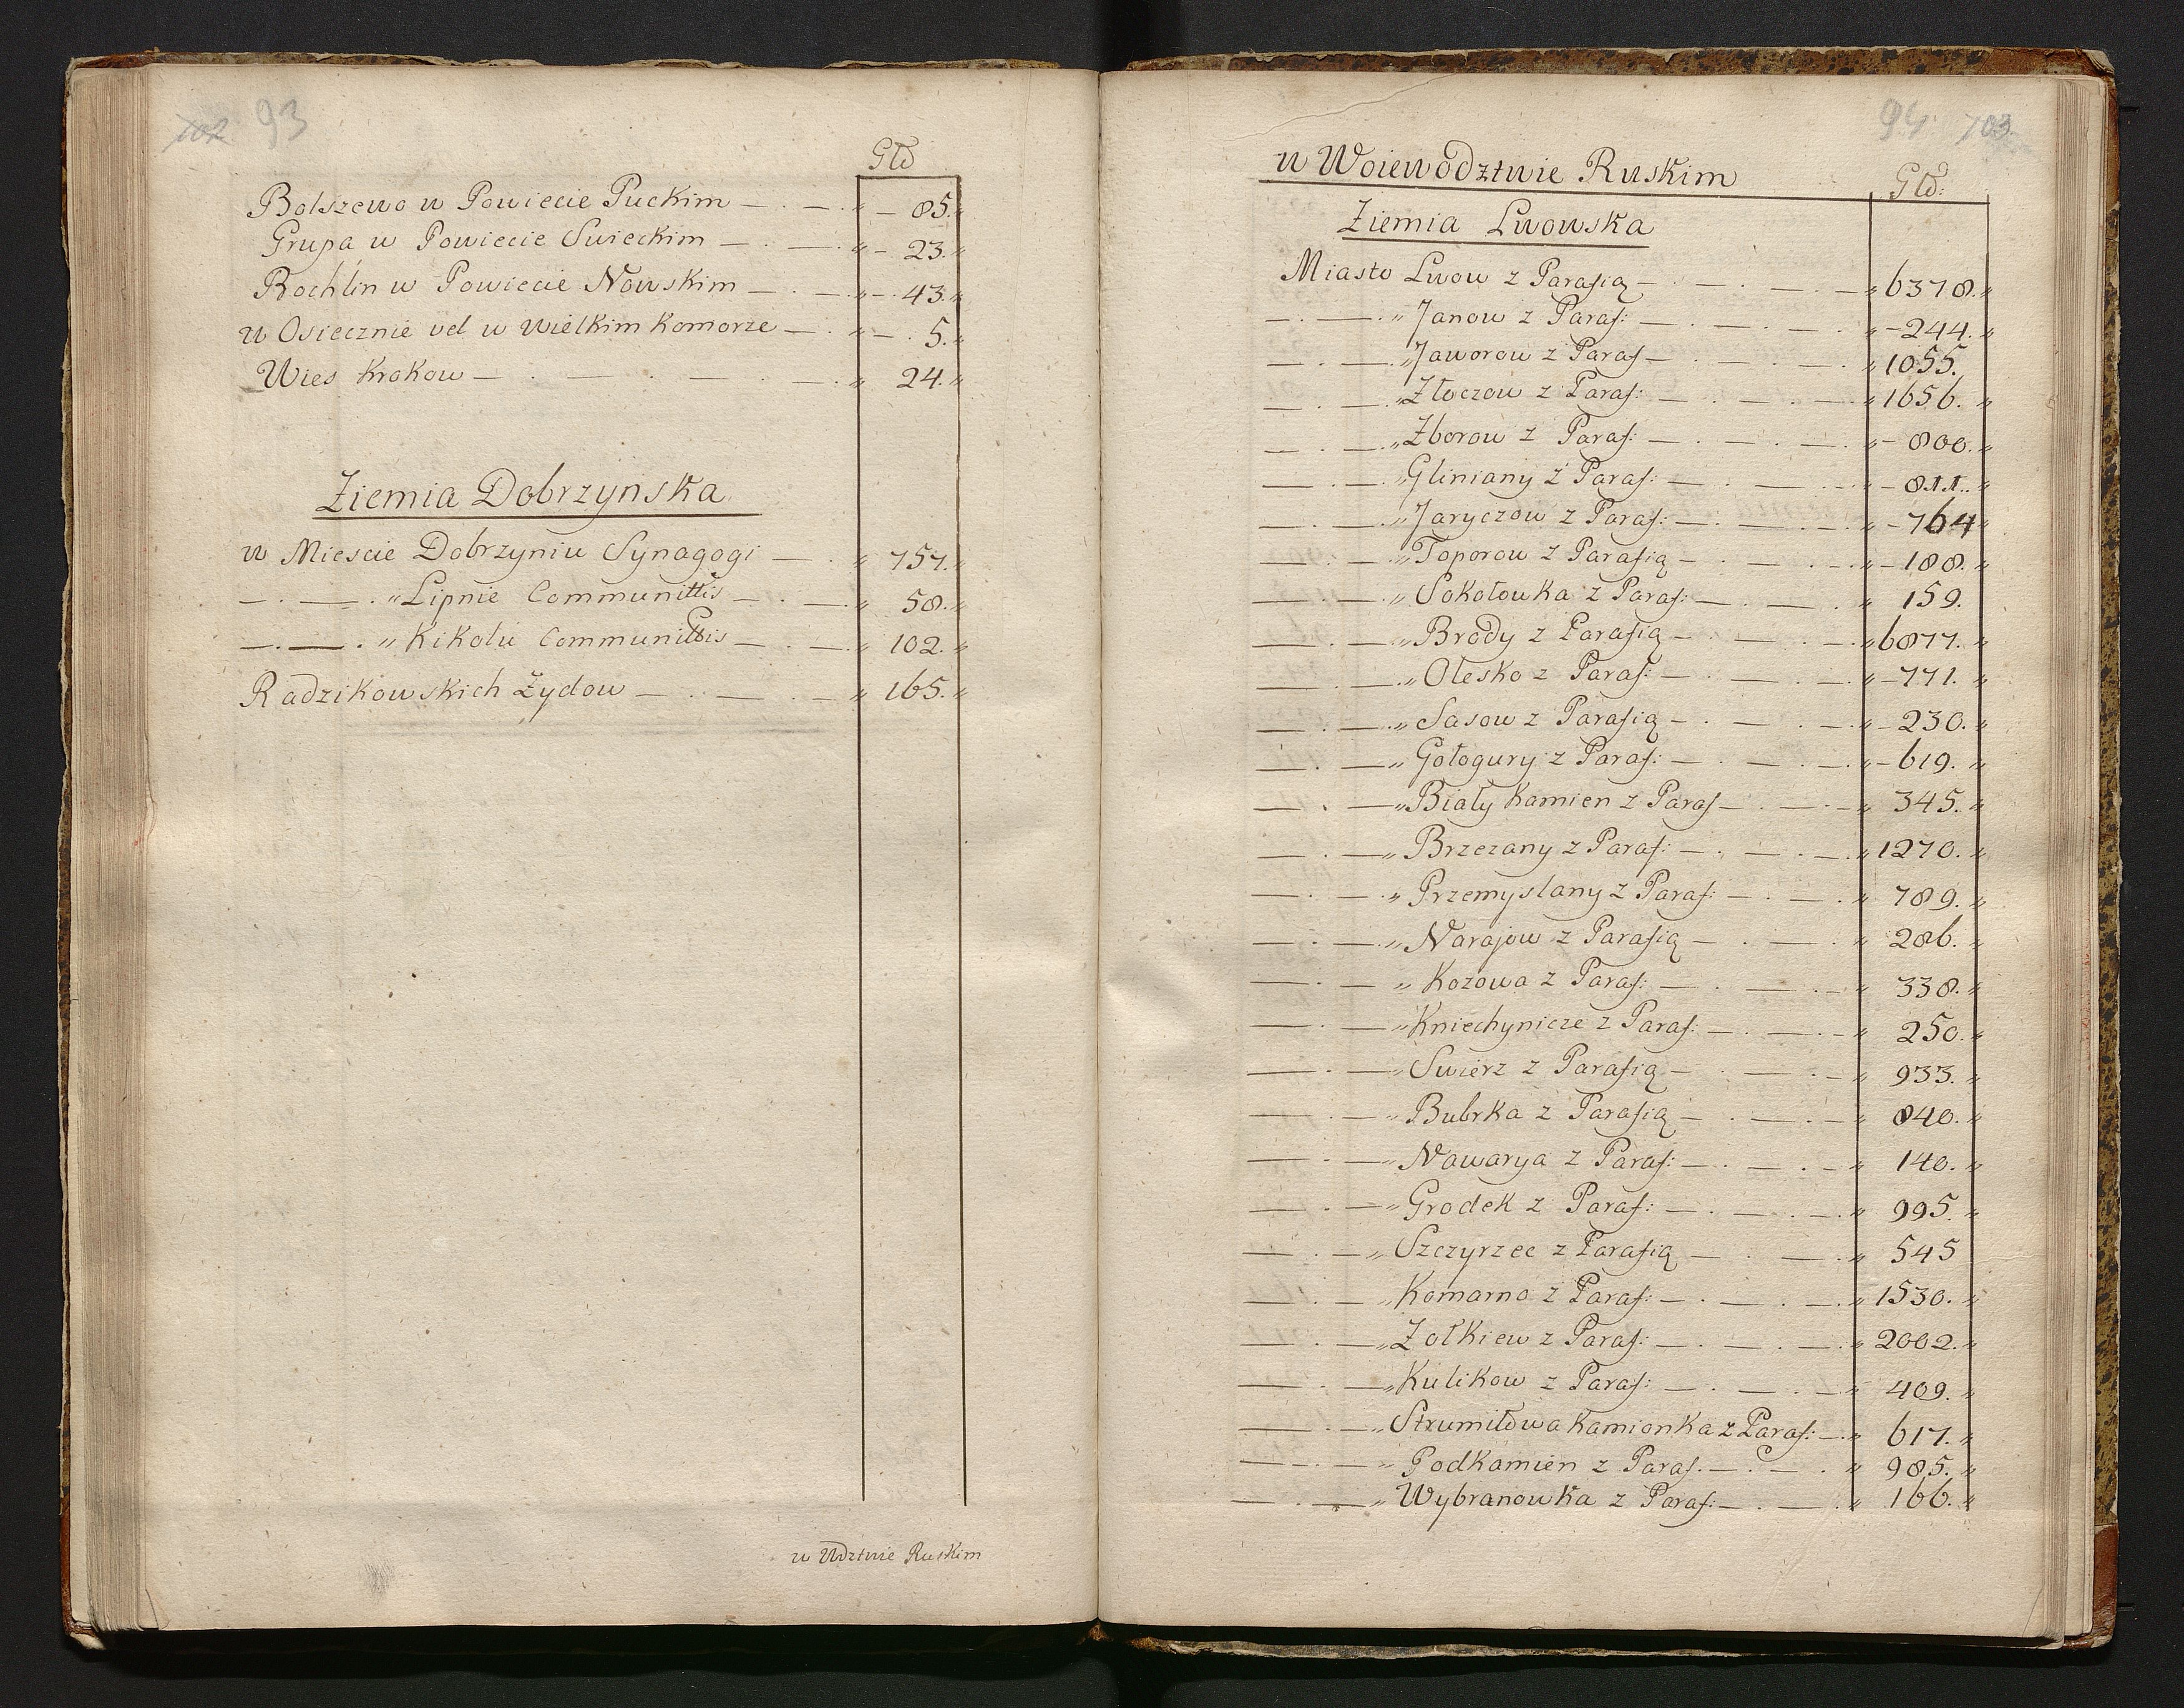 102 93
Głd
Bolszewo w Powiecie Puckim — . — . „ — 85. „
Grupa w Powiecie Swieckim — . — . „ — 23. „
Rochlin w Powiecie Nowskim — . — . „ — 43. „
w Osiecznie vel w wielkim Komorze — . „ — . 5. „
Wies Krokow — . — . — . — . „ 24. „
Ziemia Dobrzynska
w Miescie Dobrzyniu Synagogi — . „ 757. „
— . — . „ Lipnie Communittis — . — . „ 58. „
— . — . „ Kikolu Communittis — . — . „ 102. „
Radzikowskich Żydow — . — . — „ 165. „
w Wdztwie Ruskim
94 103
w Woiewodztwie Ruskim
Głd:
Ziemia Lwowska
Miasto Lwow z Parafią — . — . — „ 6378. „
— . — . „ Janow z Paraf: — . — . — . „ — 244. „
— . — . „ Jaworow z Paraf — . — . — . „ 1055.
— . — . „ Złoczow z Paraf: — . — . — „ 1656. „
— . — . „ Zborow z Paraf: — . — . — . „ — 800. „
— . — . „ Gliniany z Paraf: — . — . „ — 811. „
— . — . „ Jaryczow z Paraf: — . — . „ — 764 „
— . — . „ Toporow z Parafią — . — . — „ — 188. „
— . — . „ Sokołowka z Paraf: — . — . „ 159.
— . — . „ Brody z Parafią — . — . — „ 6877. „
— . — . „ Olesko z Paraf: — . — . — . „ — 771. „
— . — . „ Sasow z Parafią — . — . — . „ — 230. „
— . — „ Gołogury z Paraf: — . — . — „ — 619. „
— . — „ Biały Kamien z Paraf — . — . — „ 345. „
— . — „ Brzezany z Paraf: — . — . — . „ 1270. „
— . — . „ Przemyslany z Paraf: — . — . „ 789. „
— . — . „ Narajow z Parafią — . — . „ 286. „
— . — „ Kozowa z Paraf: — . — . — „ 338. „
— . — „ Kniechynicze z Paraf: — . — . — „ 250. „
— . — „ Swierz z Parafią — . — . — „ 933. „
— . — „ Bubrka z Parafią — . — . — „ 840. „
— . — „ Nawarya z Paraf: — . — . — „ 140. „
— . — „ Grodek z Paraf: — . — . — . „ 995. „
— . — „ Szczyrzec z Parafią — . — . „ 545
— . — „ Komarno z Paraf: — . — . — . „ 1530. „
— . — „ Zołkiew z Paraf: — . — . — . „ 2002. „
— . — „ Kulikow z Paraf: — . — . — „ 409. „
— . — „ Strumiłowa Kamionka z Paraf: — „ 617. „
— . — „ Podkamien z Paraf. — . — . „ 985. „
— . — . „ Wybranowka z Paraf: — . — . „ 166. „